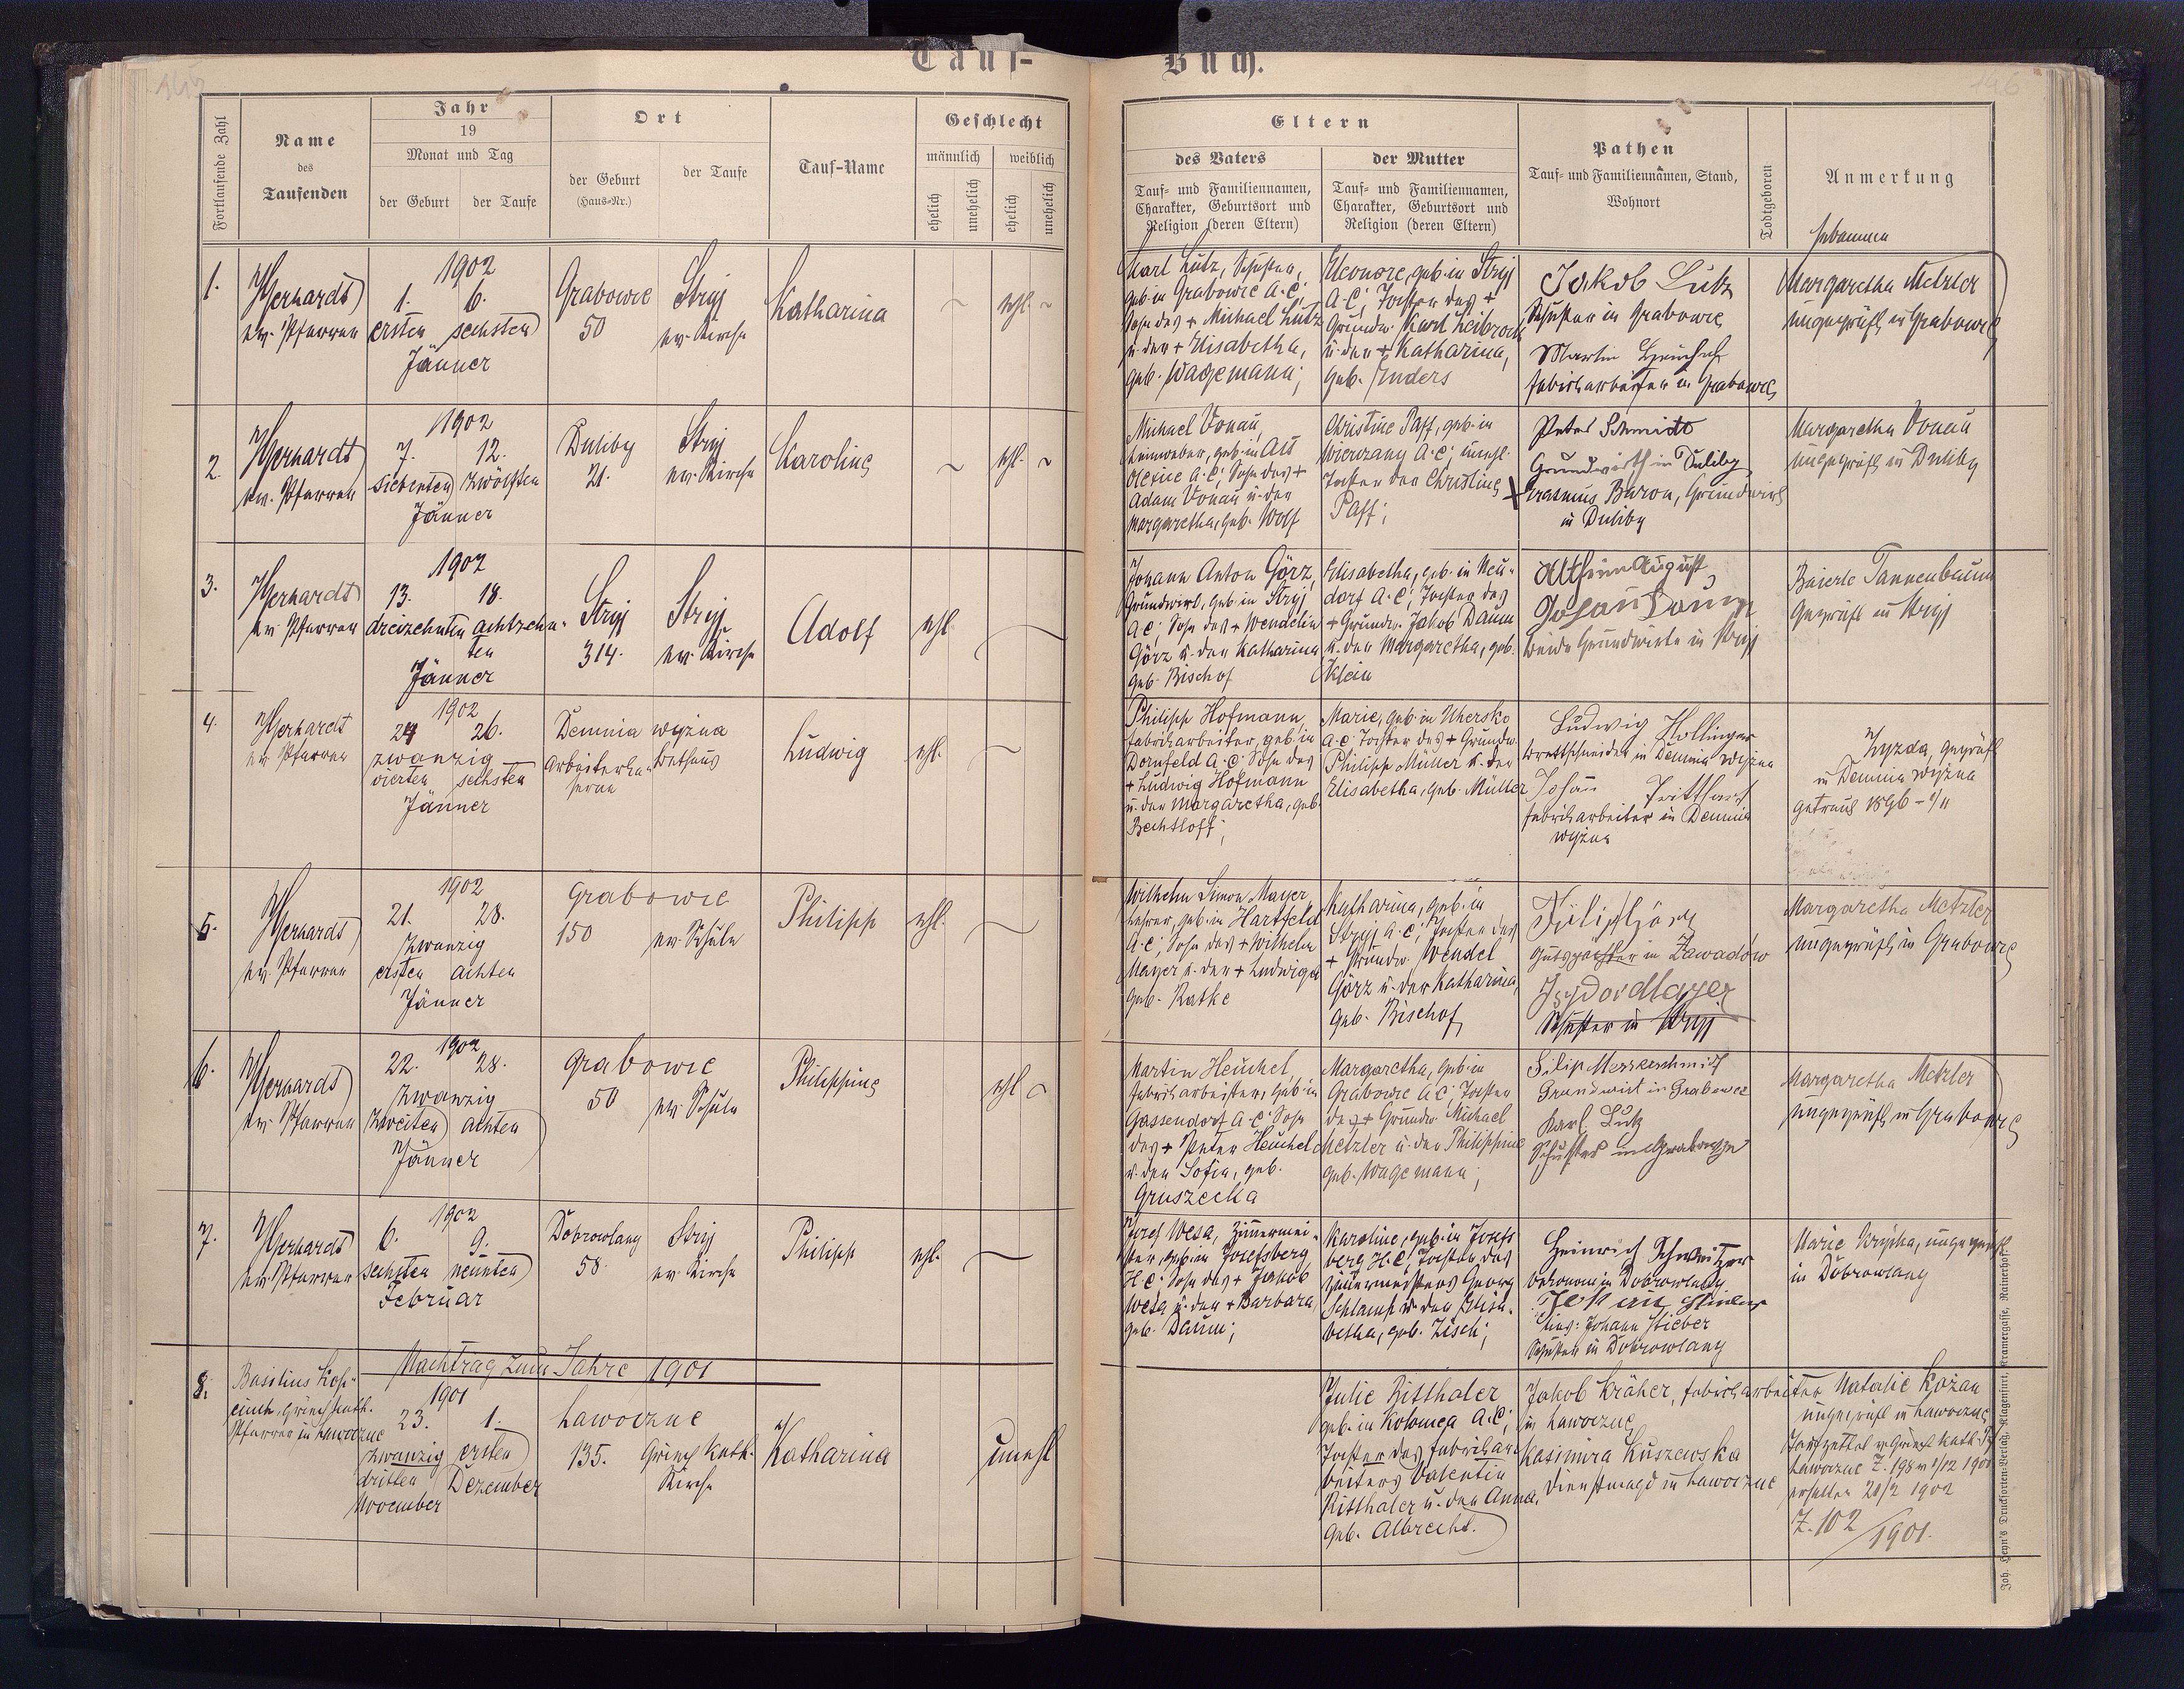 Tauf-
Buch.
145
146
Fortlaufende Zahl
Name
des
Taufenden
Jahr
19
Monat und Tag
der Geburt
der Taufe
Ort
der Geburt
(Haus-Nr.)
der Taufe
Tauf-Name
Geschlecht
männlich
weiblich
ehelich
unehelich
ehelich
unehelich
Eltern
des Vaters
Tauf- und Familiennamen,
Charakter, Geburtsort und
Religion (deren Eltern)
der Mutter
Tauf- und Familiennamen,
Charakter, Geburtsort und
Religion (deren Eltern)
Pathen
Tauf- und Familiennamen, Stand,
Wohnort
Todtgeboren
Anmerkung
Hebamme
1.
Gerhardt
ev. Pfarrer
1902
1. 6.
ersten sechsten
Jänner
Grabowce
50
Stryj
ev. Kirche
Katharina
ehl.
Karl Lutz, Schuster,
geb. in Grabowce A.C;
Sohn des + Michael Lutz
u. der + Elisabetha,
geb. Wagemann;
Eleonore, geb. in Stryj
A.C; Tochter des +
Grundw. Karl Leibrock
u. der + Katharina,
geb. Enders
Jakob Lutz
Schuster in Grabowce
Martin Heuchel
Fabriksarbeiter in Grabowce
Margaretha Metzler
ungeprüft in Grabowce
2.
Gerhardt
ev. Pfarrer
1902
7. 12.
siebenten zwölften
Jänner
Duliby
21.
Stryj
ev. Kirche
Karoline
ehl.
Michael Vonau,
Leinweber, geb. in Alt
Olexice A.C; Sohn des +
Adam Vonau u. der
Margaretha, geb. Wolf
Christine Paff, geb. in
Wierczany A.C; unehl.
Tochter der Christine
Paff;
Peter Schmidt
Grundwirth in Duliby
Erasmus Baron, Grundwirt
in Duliby
Margaretha Vonau
ungeprüft in Duliby
3.
Gerhardt
ev. Pfarrer
1902
13. 18.
dreizehnten achtzehn-
ten
Jänner
Stryj
314.
Stryj
ev. Kirche
Adolf
ehl.
Johann Anton Görz,
Grundwirt, geb. in Stryj
A.C; Sohn des + Wendelin
Görz u. der Katharina
geb. Bischof
Elisabetha, geb. in Neu-
dorf A.C; Tochter des
+ Grundw. Jakob Daum
u. der Margaretha, geb.
Klein
August
Johan Daum
beide Grundwirte in Stryj
Beierle Tannenbaum
geprüft in Stryj
4.
Gerhardt
ev. Pfarrer
1902
24 26.
zwanzig
vierten sechsten
Jänner
Demnia wyżna
Arbeiterka-
serne
Bethaus
Ludwig
ehl.
Philipp Hofmann,
Fabriksarbeiter, geb. in
Dornfeld A.C; Sohn des
+ Ludwig Hofmann
u. der Margaretha, geb.
Bechtloff;
Marie, geb. in Uhersko
A.C; Tochter des + Grundw.
Philipp Müller u. der
Elisabetha, geb. Müller
Ludwig Hollinger
Brettschneider in Demnia wyżna
Johan
Fabriksarbeiter in Demnia
wyżna
Zyzda, geprüft
in Demnia wyżna
getraut 1896 -
5.
Gerhardt
ev. Pfarrer
1902
21. 28.
zwanzig
ersten achten
Jänner
Grabowce
150
ev. Schule
Philipp
ehl.
Wilhelm Simon Mayer
Lehrer, geb. in Hartfeld
A.C; Sohn des + Wilhelm
Mayer u. der + Ludwiga
geb. Ratke
Katharina, geb. in
Stryj A.C; Tochter des
+ Grundw. Wendel
Görz u. der Katharina,
geb. Bischof
Filip Görz
Gutspächter in Zawadów
Isydor Mayer
Schuster in Stryj
Margaretha Metzler
ungeprüft in Grabowce
6.
Gerhardt
ev. Pfarrer
1902
22. 28.
zwanzig
zweiten achten
Jänner
Grabowce
50
ev. Schule
Philippine
ehl
Martin Heuchel,
Fabriksarbeiter, geb. in
Gassendorf A.C; Sohn
des + Peter Heuchel
u. der Sofia, geb.
Gruszecka
Margaretha, geb. in
Grabowce A.C; Tochter
des + Grundw. Michael
Metzler u. der Philippine
geb. Wagemann;
Filip Messerschmidt
Grundwirt in Grabowce
Karl Lutz
Schuster in Grabowce
Margaretha Metzler
ungeprüft in Grabowce
7.
Gerhardt
ev. Pfarrer
1902
6. 9.
sechsten neunten
Februar
Dobrowlany
58
Stryj
ev. Kirche
Philipp
ehl.
Josef Wesa, Zimmermei-
ster, geb. in Josefsberg
H.C; Sohn des + Jakob
Wesa u. der + Barbara,
geb. Daum;
Karoline, geb. in Josefs
berg H.C; Tochter des
Zimmermeisters Georg
Schlamp u. der Elisa-
betha, geb. Zisch;
Heinrich Schweitzer
Oekonom in Dobrowlany
Johann Stieber
Schuster in Dobrowlany
Marie Krypka, ungeprüft
in Dobrowlany
Nachtrag zum Jahre 1901
8.
Basilius
griech. kath.
Pfarrer in Ławoczne
1901
23. 1.
zwanzig ersten
dritten Dezember
November
Ławoczne
135.
Griech. kath.
Kirche
Katharina
unehl
Julie Ritthaler
geb. in Kołomea A.C;
Tochter des Fabriksar-
beiters Valentin
Ritthaler u. der Anna,
geb. Albrecht.
Jakob Kräher, Fabriksarbeiter
in Ławoczne
Kasimira Kuszewska
Dienstmagd in Ławoczne
Natalie Kożan
ungeprüft in Ławoczne
Taufzettel v. griech. kath. Pf.
Ławoczne Z. 198 v. 1/12 1901
erhalten 20/2 1902
Z. 102/1901.
Joh. Heyn's Drucksorten-Verlag, Klagenfurt, Kramergasse, Rainerhof.